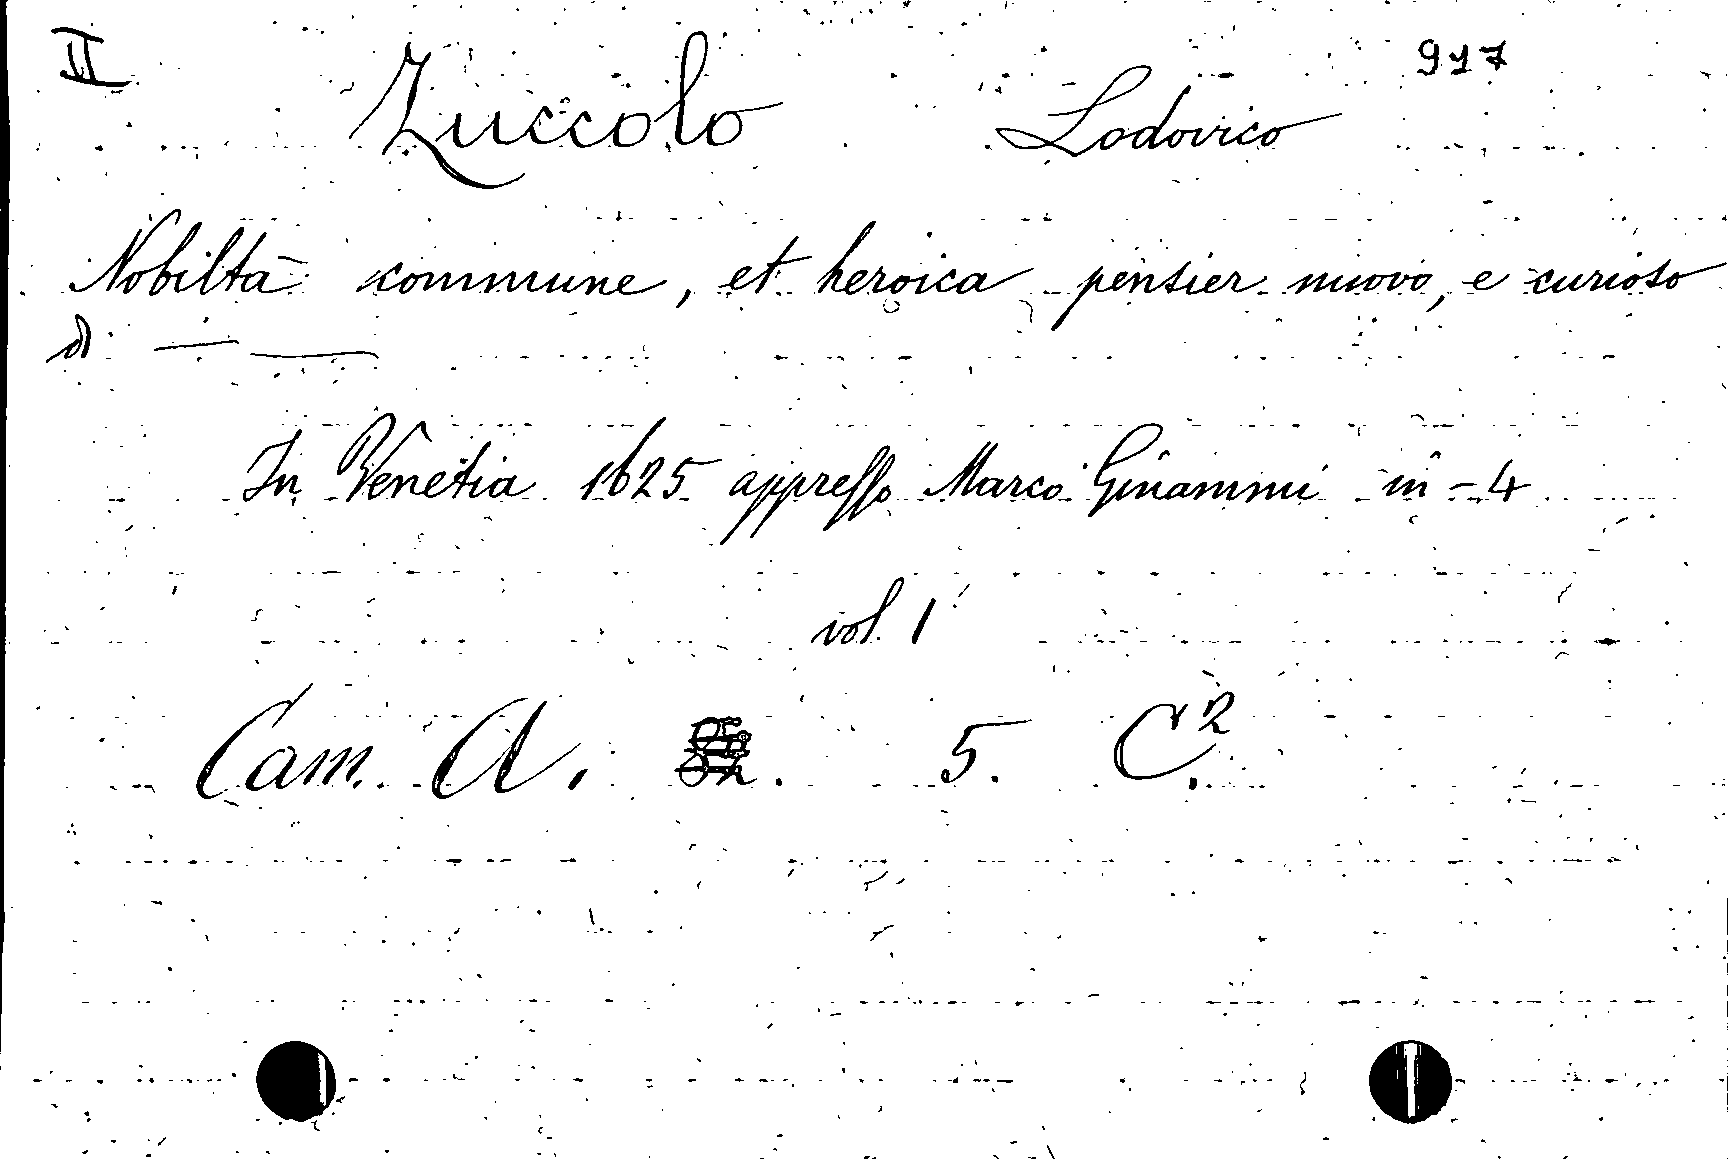 II 917
Zuccolo Lodovico
Nobiltà commune, et heroica pensier nuovo, e curioso
di — —
In Venetia 1625 appresso Marco Ginammi in-4
vol. 1
Cam. A. 5. C.2